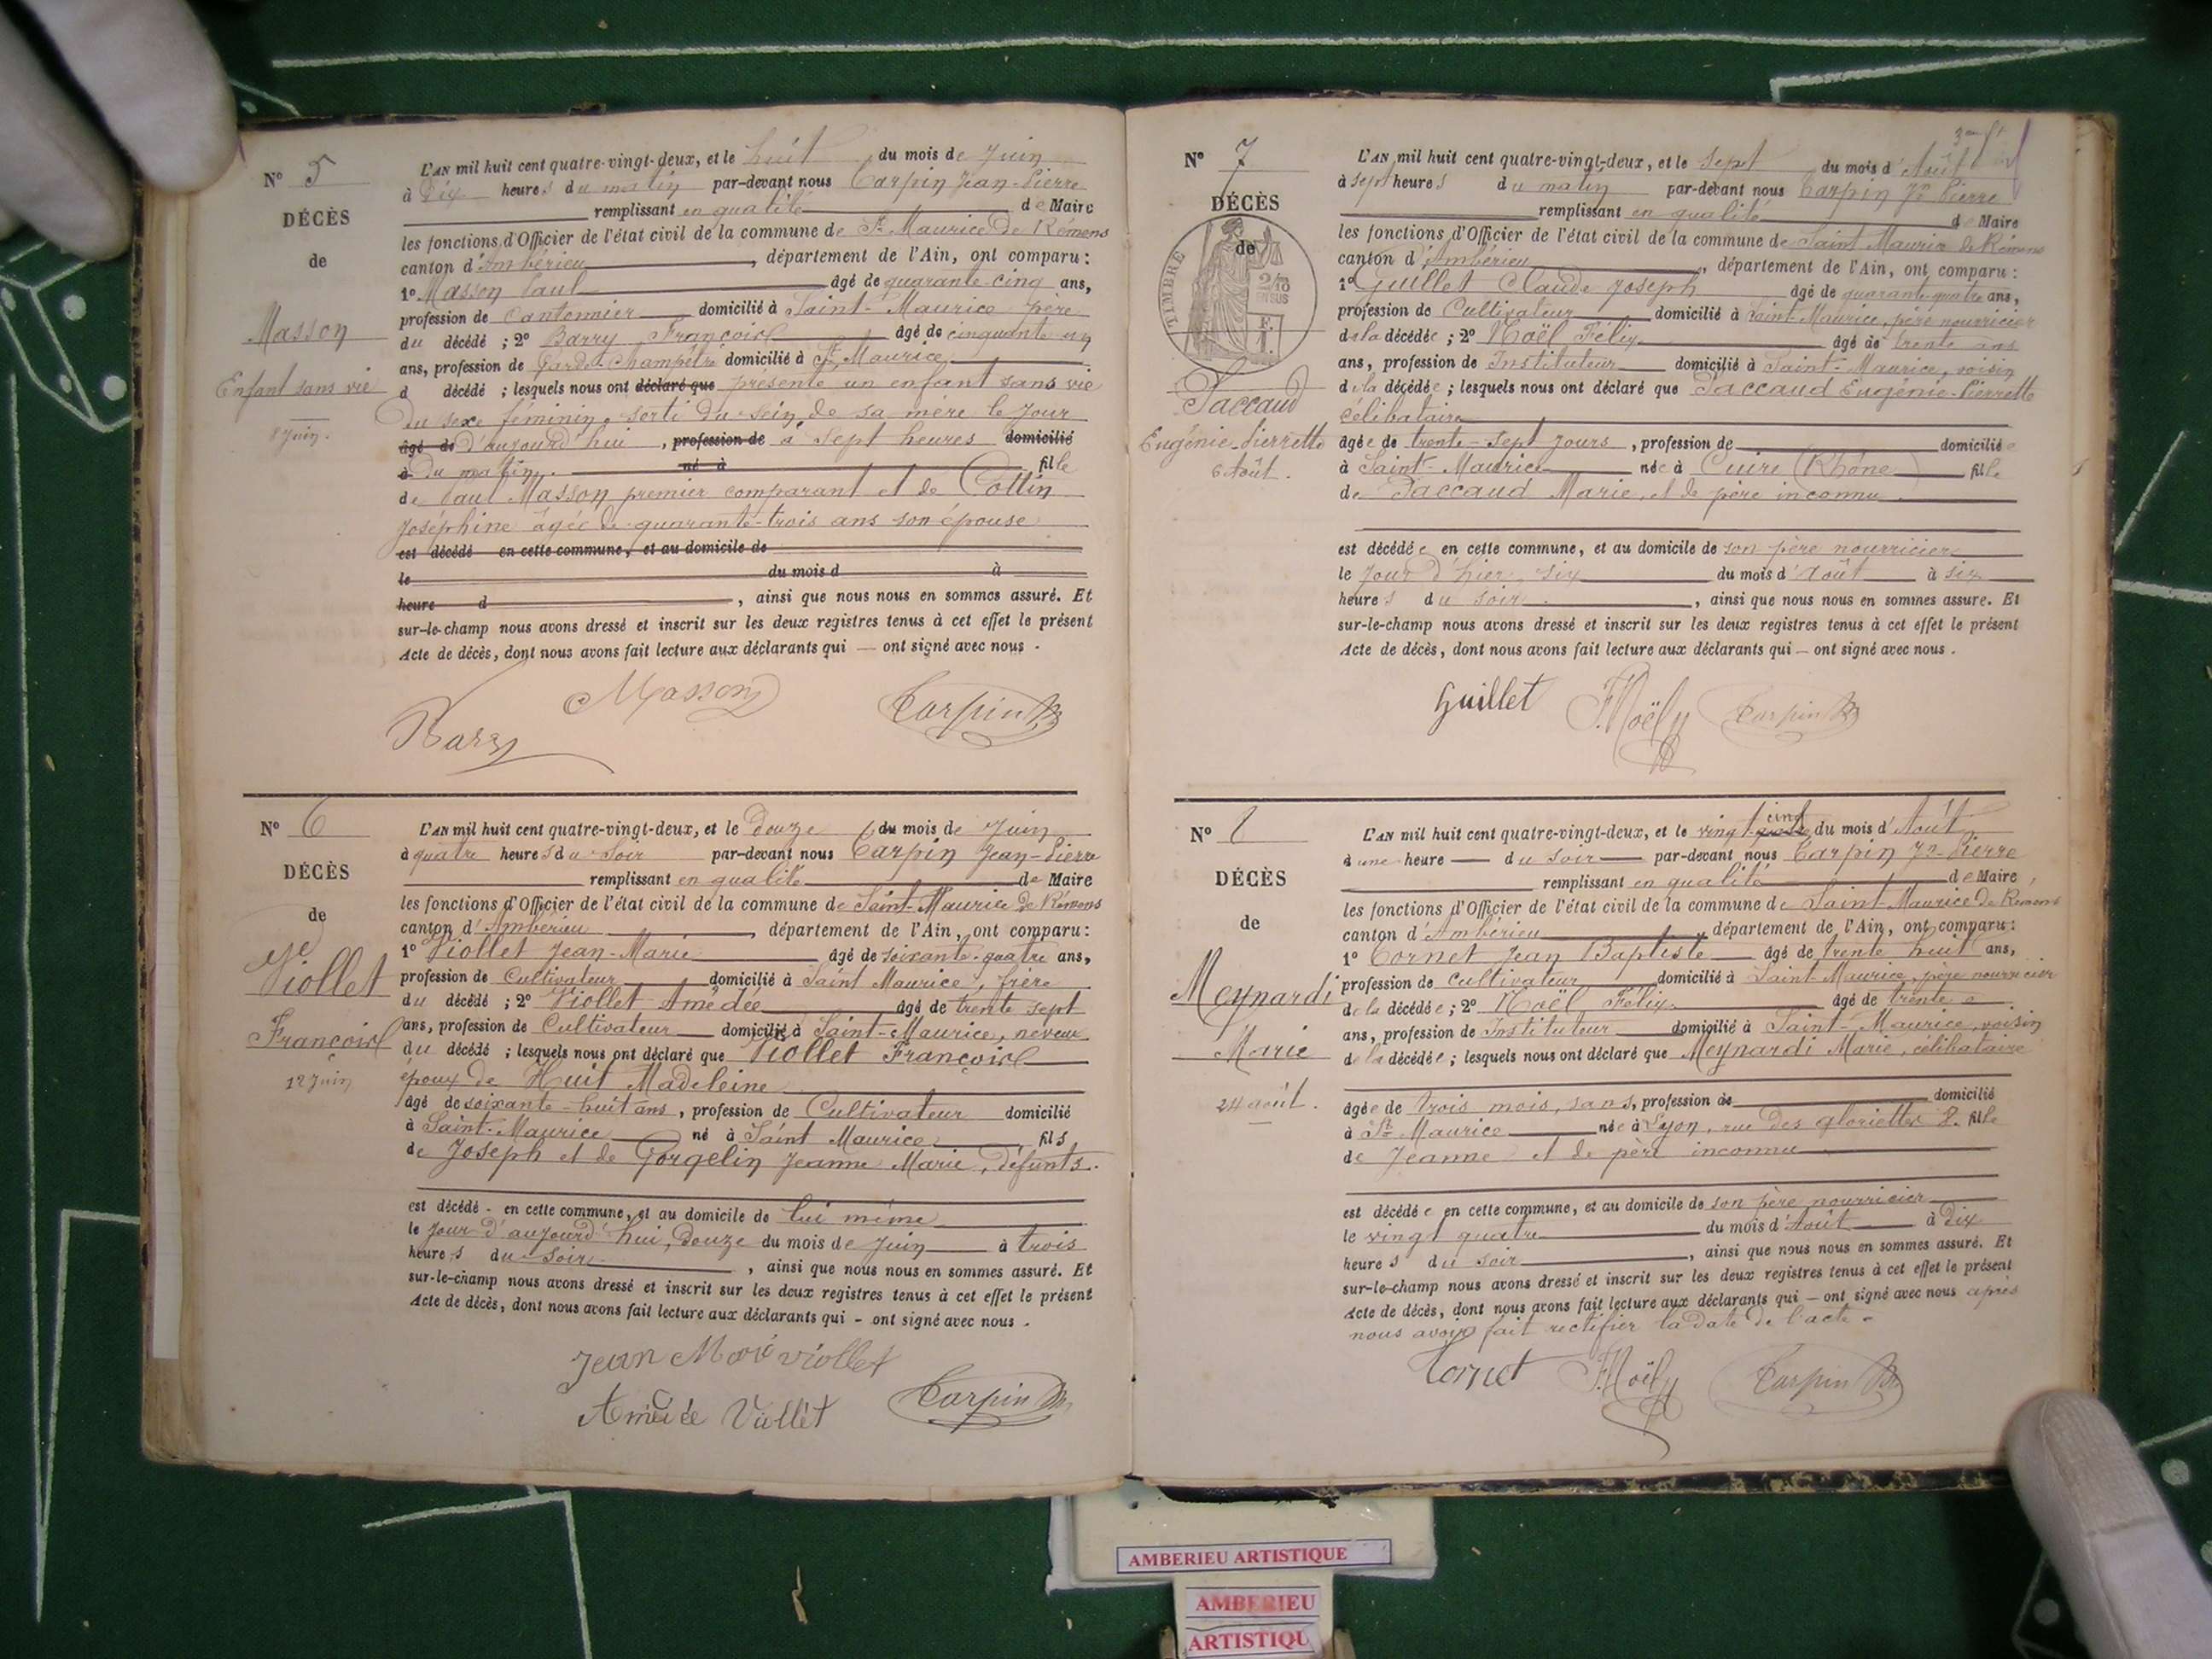 N° 5
DÉCÈS
de
Masson
Enfant sans vie
8 Juin.
L'AN mil huit cent quatre-vingt-deux, et le huit du mois de Juin
à Dix heures du matin par-devant nous Carpin Jean-Pierre
remplissant en qualité de Maire
les fonctions d'Officier de l'état civil de la commune de St Maurice De Rémens
canton d'Ambérieu, département de l'Ain, ont comparu :
1° Masson Paul âgé de quarante-cinq ans,
profession de Cantonnier domicilié à Saint-Maurice père
du décédé ; 2° Barry François âgé de cinquante un
ans, profession de Garde Champêtre domicilié à St Maurice,
d décédé ; lesquels nous ont déclaré que présenté un enfant sans vie
Du sexe féminin, sorti du sein de sa mère le jour
âgé de D'aujourd'hui, profession de à Sept heures domicilié
à Du matin. né à fille
de Paul Masson premier comparant et de Cottin
Joséphine âgée de quarante-trois ans son épouse
est décédé en cette commune, et au domicile de
le du mois d à
heure d , ainsi que nous nous en sommes assuré. Et
sur-le-champ nous avons dressé et inscrit sur les deux registres tenus à cet effet le présent
Acte de décès, dont nous avons fait lecture aux déclarants qui — ont signé avec nous .
Masson Carpin
Barry
N° 6
DÉCÈS
de
Viollet
François
12 Juin
L'AN mil huit cent quatre-vingt-deux, et le Douze du mois de Juin
à quatre heures du Soir par-devant nous Carpin Jean-Pierre
remplissant en qualité de Maire
les fonctions d'Officier de l'état civil de la commune de Saint-Maurice De Rémens
canton d'Ambérieu, département de l'Ain, ont comparu :
1° Viollet Jean-Marie âgé de soixante-quatre ans,
profession de Cultivateur domicilié à Saint Maurice, frère
du décédé ; 2° Viollet Amédée âgé de trente sept
ans, profession de Cultivateur domicilié à Saint-Maurice, neveu
du décédé ; lesquels nous ont déclaré que Viollet François
époux de Huit Madeleine
âgé de soixante-huit ans, profession de Cultivateur domicilié
à Saint-Maurice né à Saint Maurice fils
de Joseph et de Gorgelin Jeanne Marie, défunts.
est décédé - en cette commune, et au domicile de lui même
le jour d'aujourd'hui, Douze du mois de Juin à trois
heures du soir , ainsi que nous nous en sommes assuré. Et
sur-le-champ nous avons dressé et inscrit sur les deux registres tenus à cet effet le présent
Acte de décès, dont nous avons fait lecture aux déclarants qui - ont signé avec nous .
Jean Marie viollet
Amédée Viollet Carpin
N° 7
DÉCÈS
de
TIMBRE
2/10
EN SUS
Paccaud
Eugénie-Pierrette
6 Août.
L'AN mil huit cent quatre-vingt-deux, et le Sept du mois d'Août
à sept heures du matin par-devant nous Carpin Jn Pierre
remplissant en qualité de Maire
les fonctions d'Officier de l'état civil de la commune de Saint Maurice De Rémens
canton d'Ambérieu, département de l'Ain, ont comparu :
1° Guillet Claude Joseph âgé de quarante quatre ans,
profession de Cultivateur domicilié à Saint-Maurice, père nourricier
de la décédée ; 2° Noël Félix âgé de trente ans
ans, profession de Instituteur domicilié à Saint-Maurice, voisin
de la décédée ; lesquels nous ont déclaré que Paccaud Eugénie-Pierrette
célibataire
âgée de trente-sept jours, profession de domiciliée
à Saint-Maurice née à Cuire (Rhône) fille
de Paccaud Marie, et de père inconnu.
est décédée en cette commune, et au domicile de son père nourricier
le jour d'hier, six du mois d'Août à six
heures du soir. , ainsi que nous nous en sommes assuré. Et
sur-le-champ nous avons dressé et inscrit sur les deux registres tenus à cet effet le présent
Acte de décès, dont nous avons fait lecture aux déclarants qui — ont signé avec nous .
Guillet F. Noël Carpin
N° 8
DÉCÈS
de
Meynardi
Marie
24 août.
cinq
L'AN mil huit cent quatre-vingt-deux, et le vingt quatre du mois d'Août
à une heure — du soir — par-devant nous Carpin Jn-Pierre
remplissant en qualité de Maire
les fonctions d'Officier de l'état civil de la commune de Saint-Maurice de Rémens
canton d'Ambérieu, département de l'Ain, ont comparu :
1° Cornet Jean Baptiste âgé de trente huit ans,
profession de Cultivateur domicilié à Saint-Maurice, père nourricier
de la décédée ; 2° Noël Félix âgé de trente
ans, profession de Instituteur domicilié à Saint-Maurice, voisin
de la décédée ; lesquels nous ont déclaré que Meynardi Marie, célibataire
âgée de trois mois, sans, profession de domicilié
à St Maurice née à Lyon, rue des gloriettes 8. fille
de Jeanne et de père inconnu
est décédée en cette commune, et au domicile de son père nourricier
le vingt quatre du mois d'Août à Dix
heures du soir , ainsi que nous nous en sommes assuré. Et
sur-le-champ nous avons dressé et inscrit sur les deux registres tenus à cet effet le présent
Acte de décès, dont nous avons fait lecture aux déclarants qui — ont signé avec nous après
nous avoir fait rectifier la date de l'acte.
Cornet F. Noël Carpin
AMBERIEU ARTISTIQUE
AMBERIEU
ARTISTIQU